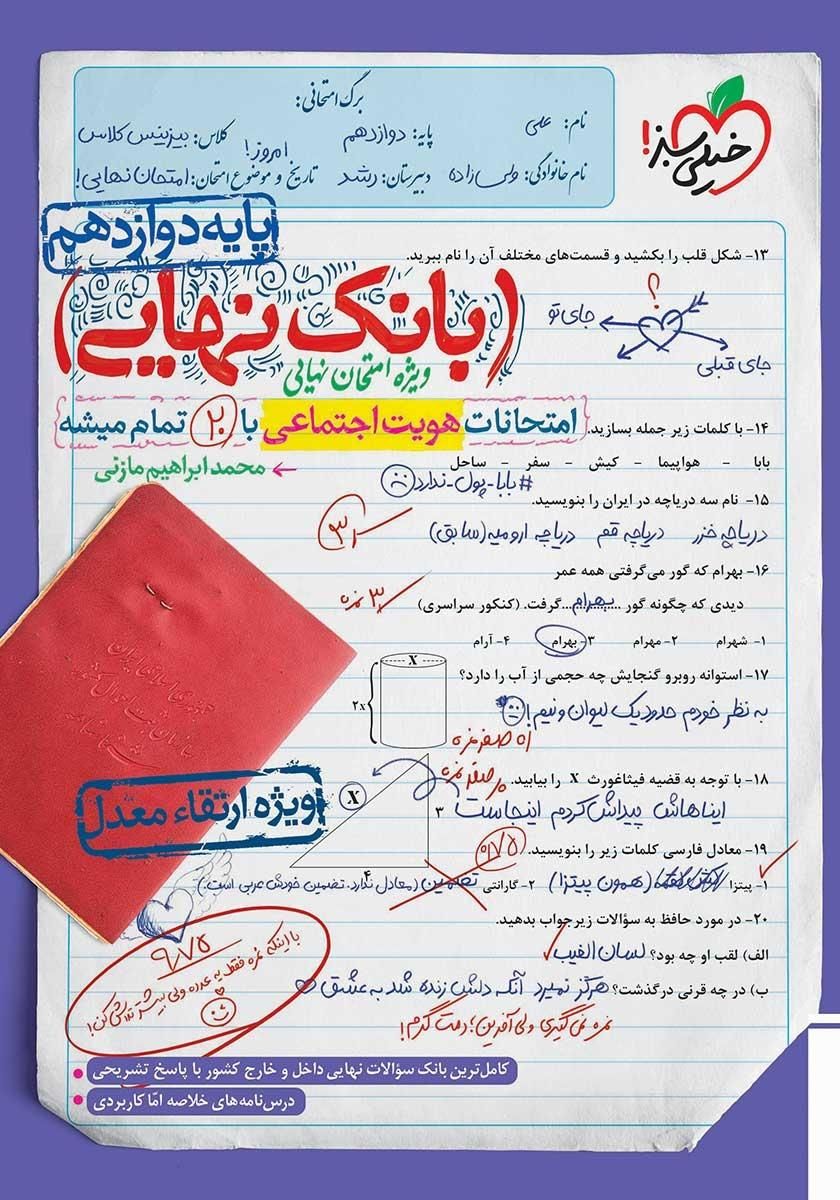 برگ امتحانی:
نام: علی
پایه: دوازدهم
کلاس: بیزینس کلاس
نام خانوادگی: ولی‌زاده
دبیرستان: رشد
تاریخ و موضوع امتحان: امروز! امتحان نهایی!
خیلی سبز!
پایه دوازدهم
۱۳- شکل قلب را بکشید و قسمت‌های مختلف آن را نام ببرید.
(بانک نهایی)
؟
جای تو
جای قبلی
ویژه امتحان نهایی
امتحانات هویت اجتماعی با ۲۰ تمام میشه
۱۴- با کلمات زیر جمله بسازید.
بابا - هواپیما - کیش - سفر - ساحل
← محمدابراهیم مازنی
#بابا-پول-ندارد
۱۵- نام سه دریاچه در ایران را بنویسید.
دریاچه خزر دریاچه قم دریاچه ارومیه (سابق)
۱۶- بهرام که گور می‌گرفتی همه عمر
دیدی که چگونه گور ...بهرام... گرفت. (کنکور سراسری)
۳ نمره
۱- شهرام ۲- مهرام ۳- بهرام ۴- آرام
۱۷- استوانه روبرو گنجایش چه حجمی از آب را دارد؟
X
۲x
به نظر خودم حدود یک لیوان و نیم!
اه صفر نمره
۱۸- با توجه به قضیه فیثاغورث X را بیابید.
صفر نمره
X
۳
۴
ایناهاش پیداش کردم اینجاست
ویژه ارتقاء معدل
۱۹- معادل فارسی کلمات زیر را بنویسید.
۰/۷۵
۱- پیتزا (همون پیتزا) ۲- گارانتی تضمین (معادل ندارد. تضمین خودش عربی است.)
۲۰- در مورد حافظ به سؤالات زیر جواب بدهید.
الف) لقب او چه بود؟ لسان الغیب
ب) در چه قرنی درگذشت؟ هرگز نمیرد آنکه دلش زنده شد به عشق
نمره نمی‌گیری ولی آفرین؛ دمت گرم!
۹/۷۵
با اینکه نمره فقط یه عدده ولی بیشتر تلاش کن!
کامل‌ترین بانک سؤالات نهایی داخل و خارج کشور با پاسخ تشریحی
درس‌نامه‌های خلاصه امّا کاربردی